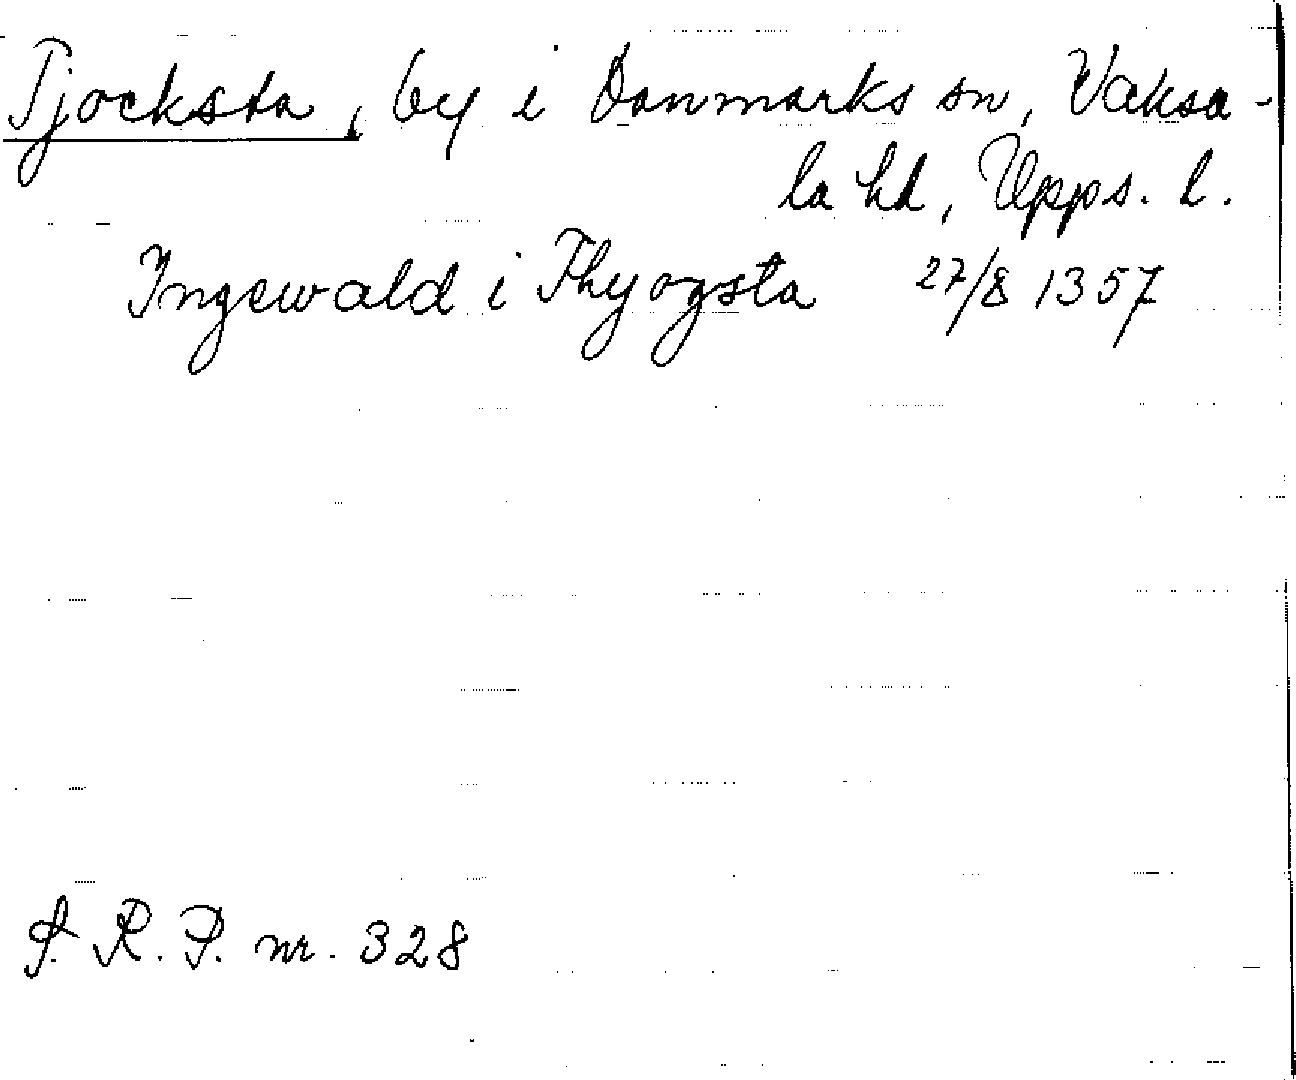 Tjocksta, by i Danmarks sn, Vaksa-
la hd, Upps. l.
Ingewald i Thyogsta 27/8 1357
S. R. P. nr. 328